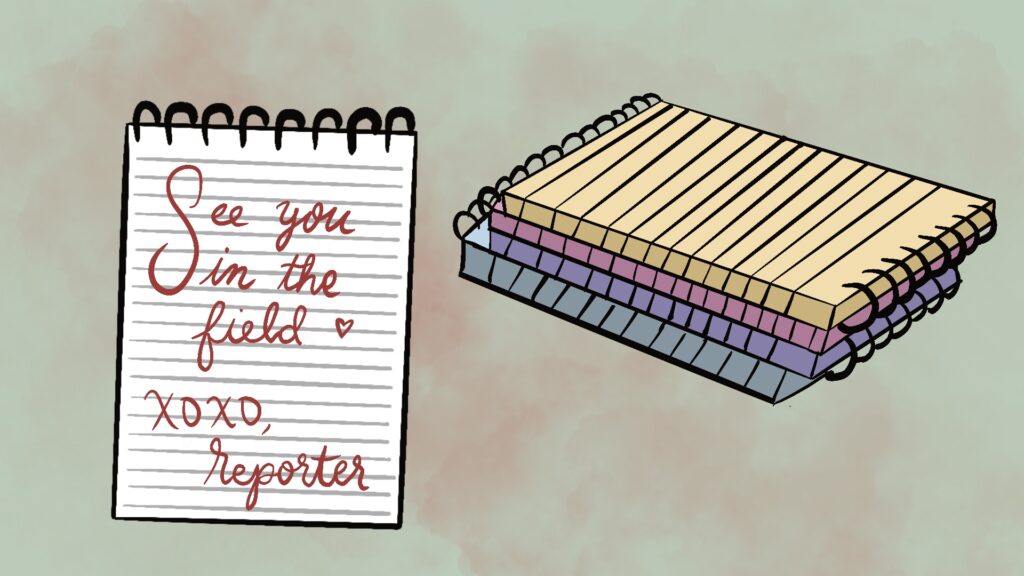 See you
in the
field ♡
xoxo,
reporter